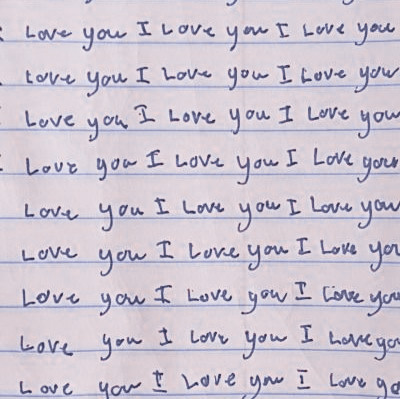 Love you I Love you I Love you
Love you I Love you I Love you
Love you I Love you I Love you
Love you I Love you I Love your
Love you I Love you I Love you
Love you I Love you I Love you
Love you I Love you I Love you
Love you I Love you I Love you
Love you I Love you I Love yo